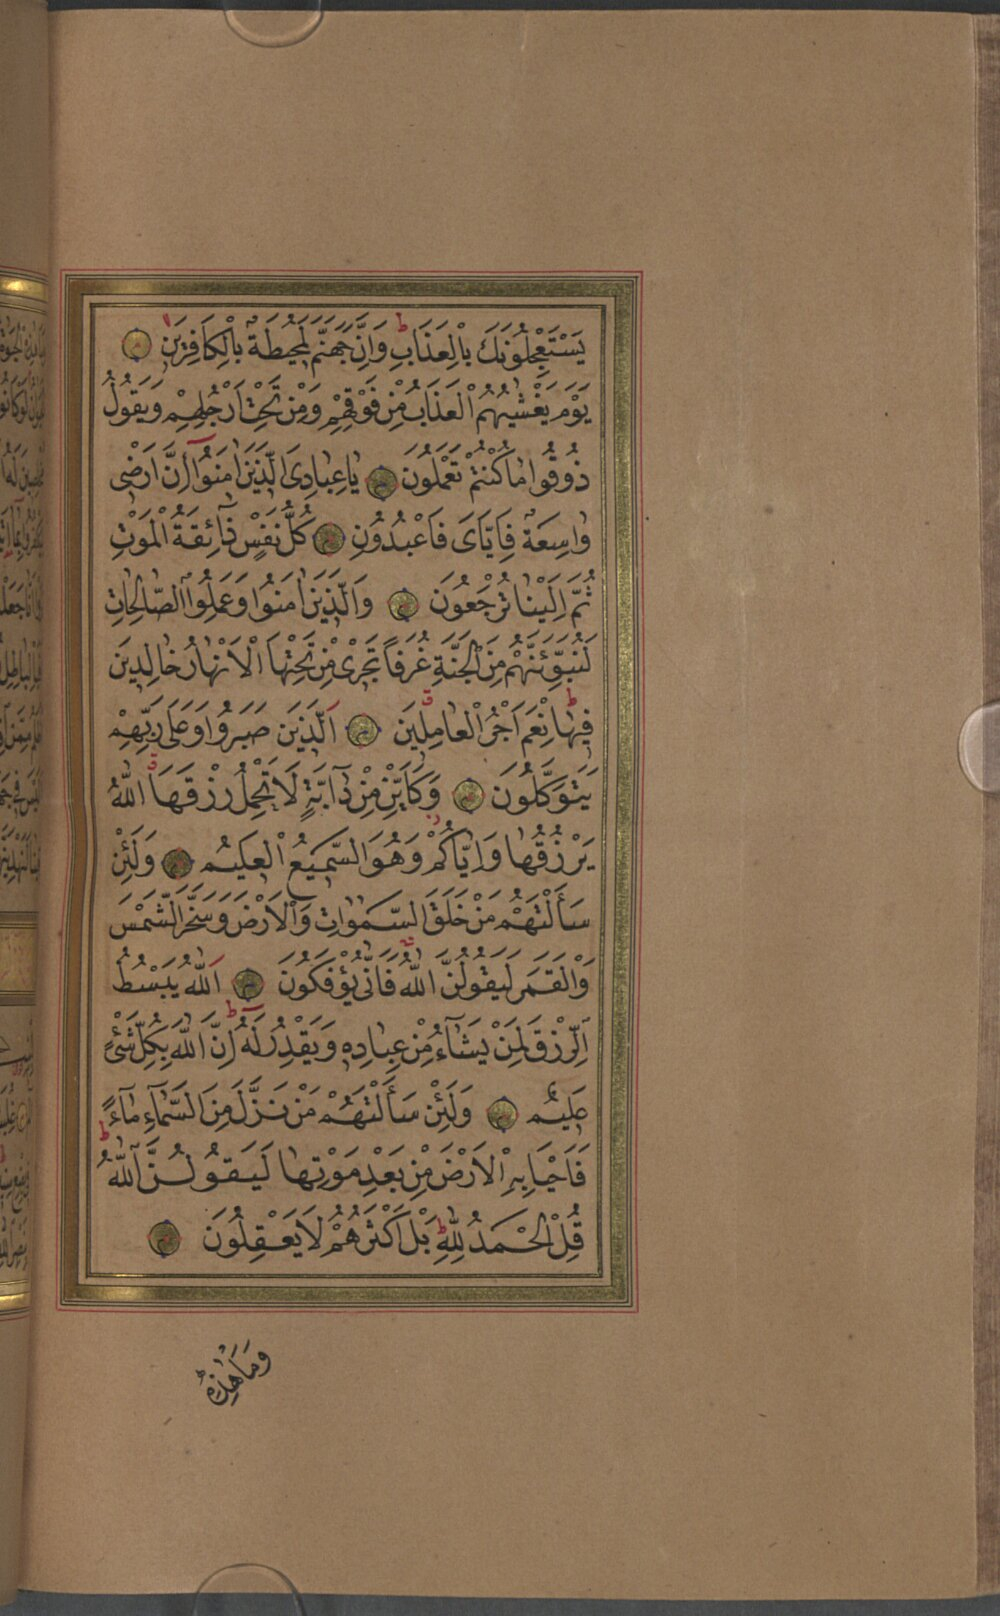 يَسْتَعْجِلُونَكَ بِالْعَذَابِ وَاِنَّ جَهَنَّمَ لَمُحِيطَةٌ بِالْكَافِرِينَ
يَوْمَ يَغْشٰيهُمُ الْعَذَابُ مِنْ فَوْقِهِمْ وَمِنْ تَحْتِ اَرْجُلِهِمْ وَيَقُولُ
ذُوقُوا مَا كُنْتُمْ تَعْمَلُونَ يَا عِبَادِىَ الَّذِينَ اٰمَنُوٓا اِنَّ اَرْضٖى
وَاسِعَةٌ فَاِيَّاىَ فَاعْبُدُونِ كُلُّ نَفْسٍ ذَٓائِقَةُ الْمَوْتِ
ثُمَّ اِلَيْنَا تُرْجَعُونَ وَالَّذِينَ اٰمَنُوا وَعَمِلُوا الصَّالِحَاتِ
لَنُبَوِّئَنَّهُمْ مِنَ الْجَنَّةِ غُرَفاً تَجْرٖى مِنْ تَحْتِهَا الْاَنْهَارُ خَالِدِينَ
فِيهَا نِعْمَ اَجْرُ الْعَامِلِينَ اَلَّذِينَ صَبَرُوا وَعَلٰى رَبِّهِمْ
يَتَوَكَّلُونَ وَكَاَيِّنْ مِنْ دَٓابَّةٍ لَا تَحْمِلُ رِزْقَهَا اَللّٰهُ
يَرْزُقُهَا وَاِيَّاكُمْ وَهُوَ السَّمِيعُ الْعَلِيمُ وَلَئِنْ
سَاَلْتَهُمْ مَنْ خَلَقَ السَّمٰوَاتِ وَالْاَرْضَ وَسَخَّرَ الشَّمْسَ
وَالْقَمَرَ لَيَقُولُنَّ اللّٰهُ فَاَنّٰى يُؤْفَكُونَ اَللّٰهُ يَبْسُطُ
الرِّزْقَ لِمَنْ يَشَٓاءُ مِنْ عِبَادِهٖ وَيَقْدِرُ لَهُ اِنَّ اللّٰهَ بِكُلِّ شَىْءٍ
عَلِيمٌ وَلَئِنْ سَاَلْتَهُمْ مَنْ نَزَّلَ مِنَ السَّمَٓاءِ مَٓاءً
فَاَحْيَا بِهِ الْاَرْضَ مِنْ بَعْدِ مَوْتِهَا لَيَقُولُنَّ اللّٰهُ
قُلِ الْحَمْدُ لِلّٰهِ بَلْ اَكْثَرُهُمْ لَا يَعْقِلُونَ
وَمَا هٰذِهِ